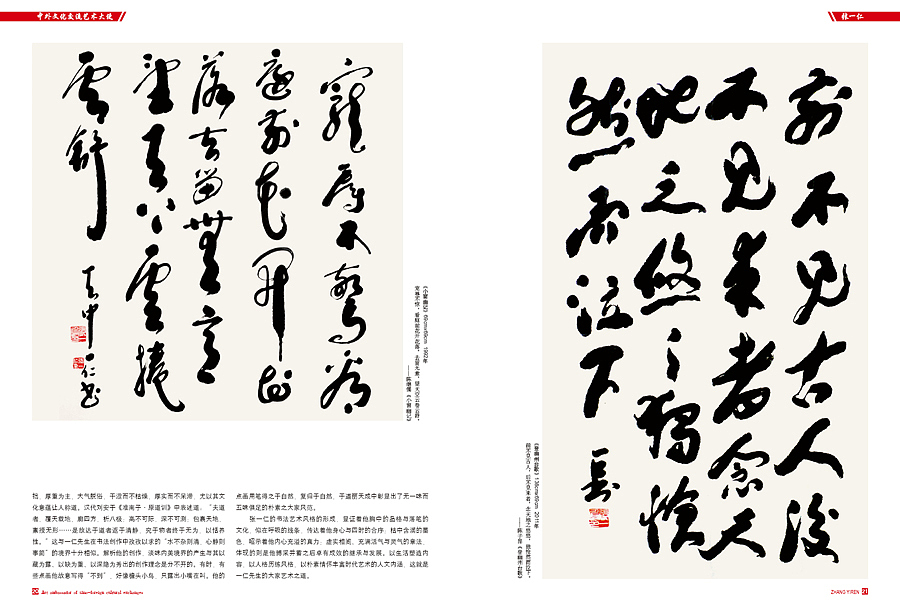 中外文化交流艺术大使
张一仁
寵辱不驚看
庭前花開花
落去留無意
望天雲捲
雲舒
天中一仁书
《小窗幽记》 69cm×69cm 1992年
宠辱不惊，看庭前花开花落，去留无意，望天空云卷云舒。
——陈继儒《小窗幽记》
前不見古人後
不見來者念天
地之悠悠獨愴
然而泣下
《登幽州台歌》 136cm×69cm 2011年
前不见古人，后不见来者，念天地之悠悠，独怆然而泣下。
——陈子昂《登幽州台歌》
拙、厚重为主，大气脱俗，干涩而不枯燥，厚实而不呆滞，尤以其文
化意蕴让人称道。汉代刘安于《淮南子·原道训》中表述道：“夫道
者，覆天载地，廓四方，柝八极；高不可际，深不可测，包裹天地，
禀授无形……是故达于道者返于清静，究于物者终于无为，以恬养
性。”这与一仁先生在书法创作中孜孜以求的“水不杂则清，心静则
事简”的境界十分相似。解析他的创作，淡味内美境界的产生与其以
藏为露、以缺为重、以深隐为秀出的创作理念是分不开的。有时，有
些点画他故意写得“不到”，好像镜头小鸟，只露出小嘴在叫。他的
点画用笔得之于自然，复归于自然，平道丽天成中彰显出了无一味而
五味俱足的朴素之大家风范。
张一仁的书法艺术风格的形成，显证着他胸中的品格与落笔的
文化，似在呼吸的线条，传达着他身心与四时的合作，枯中含润的墨
色，昭示着他内心充溢的真力，虚实相揽、充满活气与灵气的章法，
体现的则是他博采并蓄之后卓有成效的继承与发展。以生活塑造内
容，以人格历炼风格，以朴素情怀丰富时代艺术的人文内涵，这就是
一仁先生的大家艺术之道。
20 Art ambassador of sino-foreign cultural exchanges
ZHANG YIREN 21